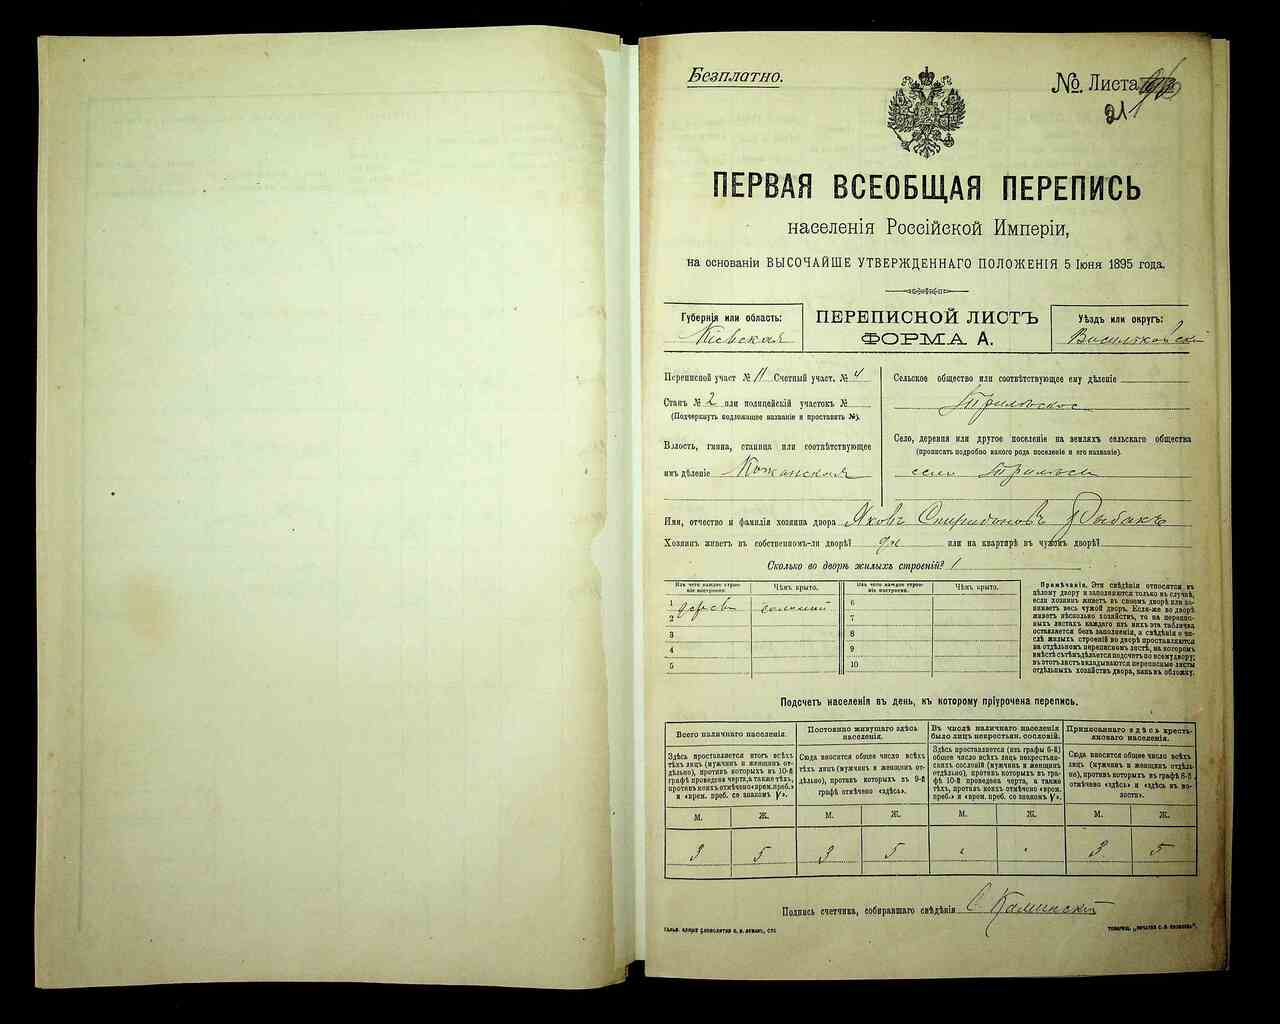 Безплатно.
№ Листа
21
ПЕРВАЯ ВСЕОБЩАЯ ПЕРЕПИСЬ
населенія Россійской Имперіи,
на основаніи ВЫСОЧАЙШЕ УТВЕРЖДЕННАГО ПОЛОЖЕНІЯ 5 Іюня 1895 года.
Губернія или область:
Кіевская
ПЕРЕПИСНОЙ ЛИСТЪ
ФОРМА А.
Уѣздъ или округъ:
Васильковскій
Переписной участ № 11 Счетный участ. № 4
Станъ № 2 или полицейскій участокъ №
(Подчеркнуть подлежащее названіе и проставить №).
Волость, гмина, станица или соотвѣтствующее
имъ дѣленіе Кожанская
Сельское общество или соотвѣтствующее ему дѣленіе
Трилѣсское
Село, деревня или другое поселеніе на земляхъ сельскаго общества
(прописать подробно какого рода поселеніе и его названіе).
село Трилѣсы
Имя, отчество и фамилія хозяина двора Яковъ Спиридоновъ Рыбакъ
Хозяинъ живетъ въ собственномъ-ли дворѣ? да или на квартирѣ въ чужомъ дворѣ?
Сколько во дворѣ жилыхъ строеній? 1
Изъ чего каждое строе-
ніе построено.
Чѣмъ крыто.
Изъ чего каждое строе-
ніе построено.
Чѣмъ крыто.
1 дерев. соломой 6
2 7
3 8
4 9
5 10
Примѣчаніе. Эти свѣдѣнія относятся къ
цѣлому двору и заполняются только въ случаѣ,
если хозяинъ живетъ въ своемъ дворѣ или за-
нимаетъ весь чужой дворъ. Если-же во дворѣ
живетъ нѣсколько хозяйствъ, то на перепис-
ныхъ листахъ каждаго изъ нихъ эта табличка
оставляется безъ заполненія, а свѣдѣнія о чи-
слѣ жилыхъ строеній во дворѣ проставляются
на отдѣльномъ переписномъ листѣ, на которомъ
вмѣстѣ съ тѣмъ дѣлается подсчетъ по всему двору;
въ этотъ листъ вкладываются переписные листы
отдѣльныхъ хозяйствъ двора, какъ въ обложку.
Подсчетъ населенія въ день, къ которому пріурочена перепись.
Всего наличнаго населенія.
Постоянно живущаго здѣсь
населенія.
Въ числѣ наличнаго населенія
было лицъ некрестьян. сословій.
Приписаннаго здѣсь кресть-
янскаго населенія.
Здѣсь проставляется итогъ всѣхъ
тѣхъ лицъ (мужчинъ и женщинъ от-
дѣльно), противъ которыхъ въ 10-й
графѣ проведена черта, а также тѣхъ,
противъ коихъ отмѣчено «врем. преб.»
и «врем. преб. со знакомъ V».
Сюда вносится общее число всѣхъ
тѣхъ лицъ (мужчинъ и женщинъ от-
дѣльно), противъ которыхъ въ 9-й
графѣ отмѣчено «здѣсь».
Здѣсь проставляется (изъ графы 6-й)
общее число всѣхъ лицъ некрестьян-
скихъ сословій (мужчинъ и женщинъ
отдѣльно), противъ которыхъ въ гра-
фѣ 10-й проведена черта, а также
тѣхъ, противъ коихъ отмѣчено «врем.
преб.» и «врем. преб. со знакомъ V».
Сюда вносится общее число всѣхъ
лицъ (мужчинъ и женщинъ отдѣль-
но), противъ которыхъ въ графѣ 8-й
отмѣчено «здѣсь» и «здѣсь въ во-
лости».
М. Ж. М. Ж. М. Ж. М. Ж.
3 5 3 5 3 5
Подпись счетчика, собиравшаго свѣдѣнія С. Каминскій